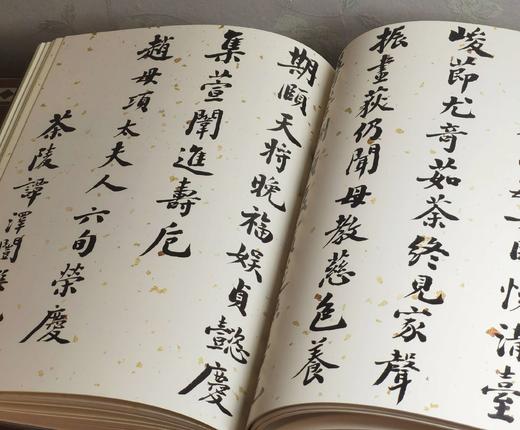 清臺
峻節尤奇茹荼終見家聲
振畫荻仍聞母教慈色養
期頤天將晚福娛貞懿慶
集萱闈進壽卮
趙母項太夫人六旬榮慶
茶陵譚澤闓